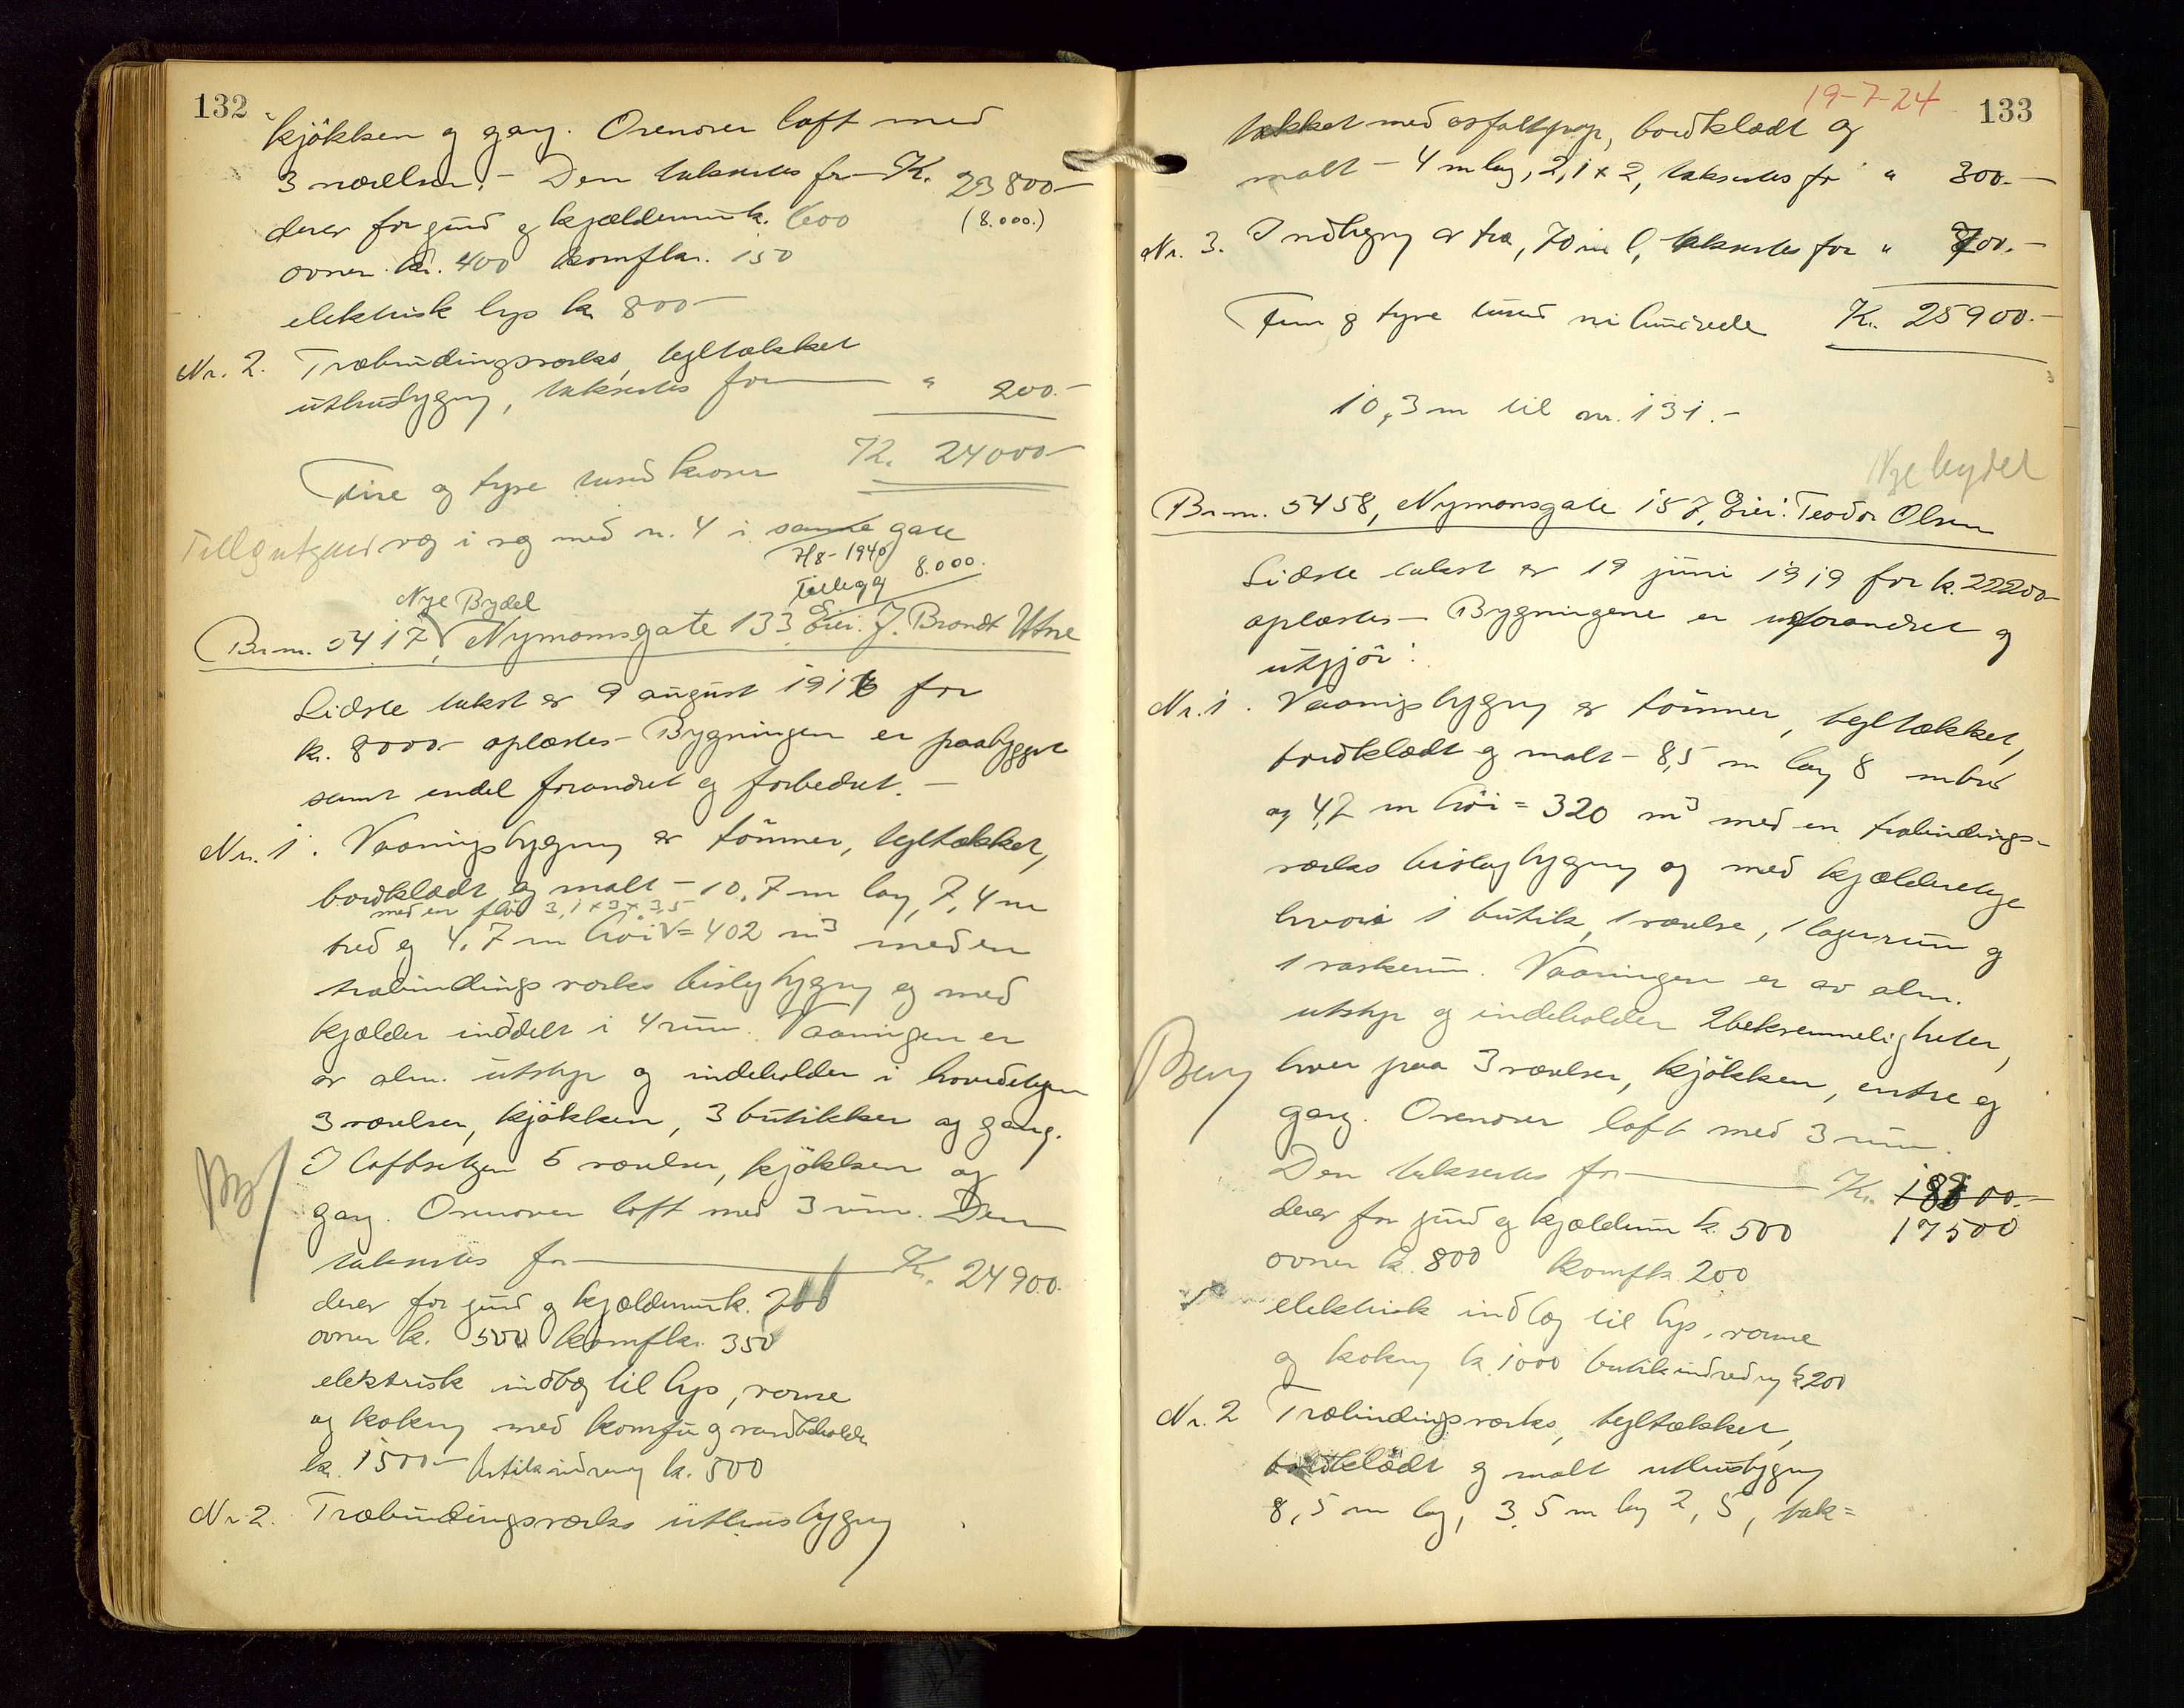 132
kjøkken og gang. Ovenover loft med
3 værelser. – Den takseres for – K. 23800–
derav for grund og kjældermur k. 600 (8.000.)
ovner kr. 400 komfkr. 150
elektrisk lys kr 800–
Nr. 2. Træbindingsverks, tegltækket
uthusbygning, takseres for — " 200.–
Fire og tyve tusend kroner K. 24000–
væg i væg med nr. 4 i samme gate
7/8-1940
Tillegg 8.000.
Nye Bydel
Br.nr. 5417, Nymansgate 133. Eier: J. Brandt Utne
Sidste takst er 9 august 1916 for
kr. 8000.– oplæstes – Bygningen er paabygget
samt endel forandret og forbedret. –
Nr. 1. Vaaningsbygning av tømmer, tegltækket,
bordklædt og malt – 10,7 m lang, 7,4 m
med en fløi 3,1 x 3 x 3,5
bred og 4,7 m høi = 402 m³ med en
træbindingsverks bislagbygning og med
kjælder inddelt i 4 rum. Vaaningen er
av alm. utstyr og indeholder i hovedetagen
3 værelser, kjøkken, 3 butikker og gang.
I loftsetagen 5 værelser, kjøkken og
gang. Ovenover loft med 3 rum. Den
takseres for — K. 24900.
derav for grund og kjældermur k. 700
ovner k. 500 komfkr. 350
elektrisk indlæg til lys, varme
og kokning med komfur og vandbeholder
kr. 1500.– butikindredning k. 500
Nr 2. Træbindingsverks uthusbygning
19-7-24
133
tækket med asfaltpap, bordklædt og
malt – 4 m lang, 2,1 x 2, takseres for " 300.–
Nr. 3. Indhegning av træ, 70 m l, takseres for " 700.–
Fem og tyve tusend ni hundrede K. 25900.–
10,3 m til nr. 131.–
Nye bydel
Br.nr. 5458, Nymansgate 157, Eier: Teodor Olsen
Sidste takst er 19 juni 1919 for k. 22200–
oplæstes – Bygningene er uforandret og
utgjør:
Nr. 1. Vaaningsbygning av tømmer, tegltækket,
bordklædt og malt – 8,5 m lang 8 m bred
og 4,7 m høi = 320 m³ med en træbindings-
verks bislagbygning og med kjælderetage
hvori 1 butik, 1 værelse, 1 lagerrum og
1 vaskerum. Vaaningen er av alm.
utstyr og indeholder 2 bekvemmeligheter,
hver paa 3 værelser, kjøkken, entre og
gang. Ovenover loft med 3 rum.
Den takseres for — K. 18800.–
derav for grund og kjælderm k. 500 17500
ovner k. 800 komfk. 200
elektrisk indlæg til lys, varme
og kokning k. 1000 butikindredning k 200
Nr. 2 Træbindingsverks, tegltækket,
bordklædt og malt uthusbygning
8,5 m lang, 3,5 m lang 2,5, tak=